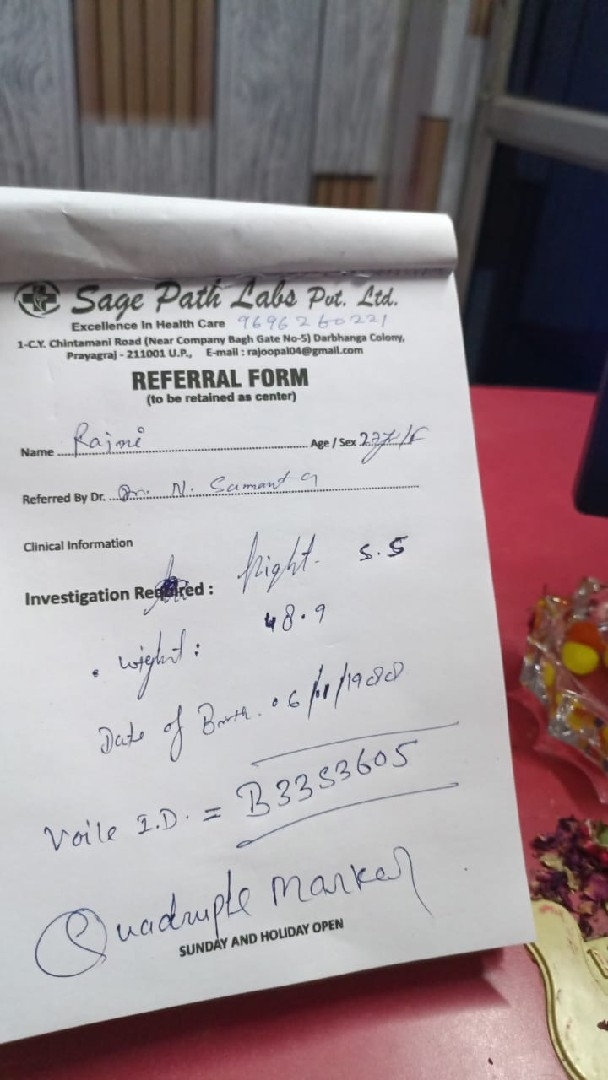 Sage Path Labs Pvt. Ltd.
Excellence in Health Care 9696260221
1-C.Y. Chintamani Road (Near Company Bagh Gate No-5) Darbhanga Colony,
Prayagraj - 211001 U.P., E-mail : rajoopal04@gmail.com
REFERRAL FORM
(to be retained as center)
Name Rajni Age / Sex
Referred By Dr. Dr. N. Samant
Clinical Information
Investigation Required : hight. 5.5
wight : 48.9
Date of Birth. 06/11/1988
Voile I.D. = B3353605
Quadruple Marker
SUNDAY AND HOLIDAY OPEN